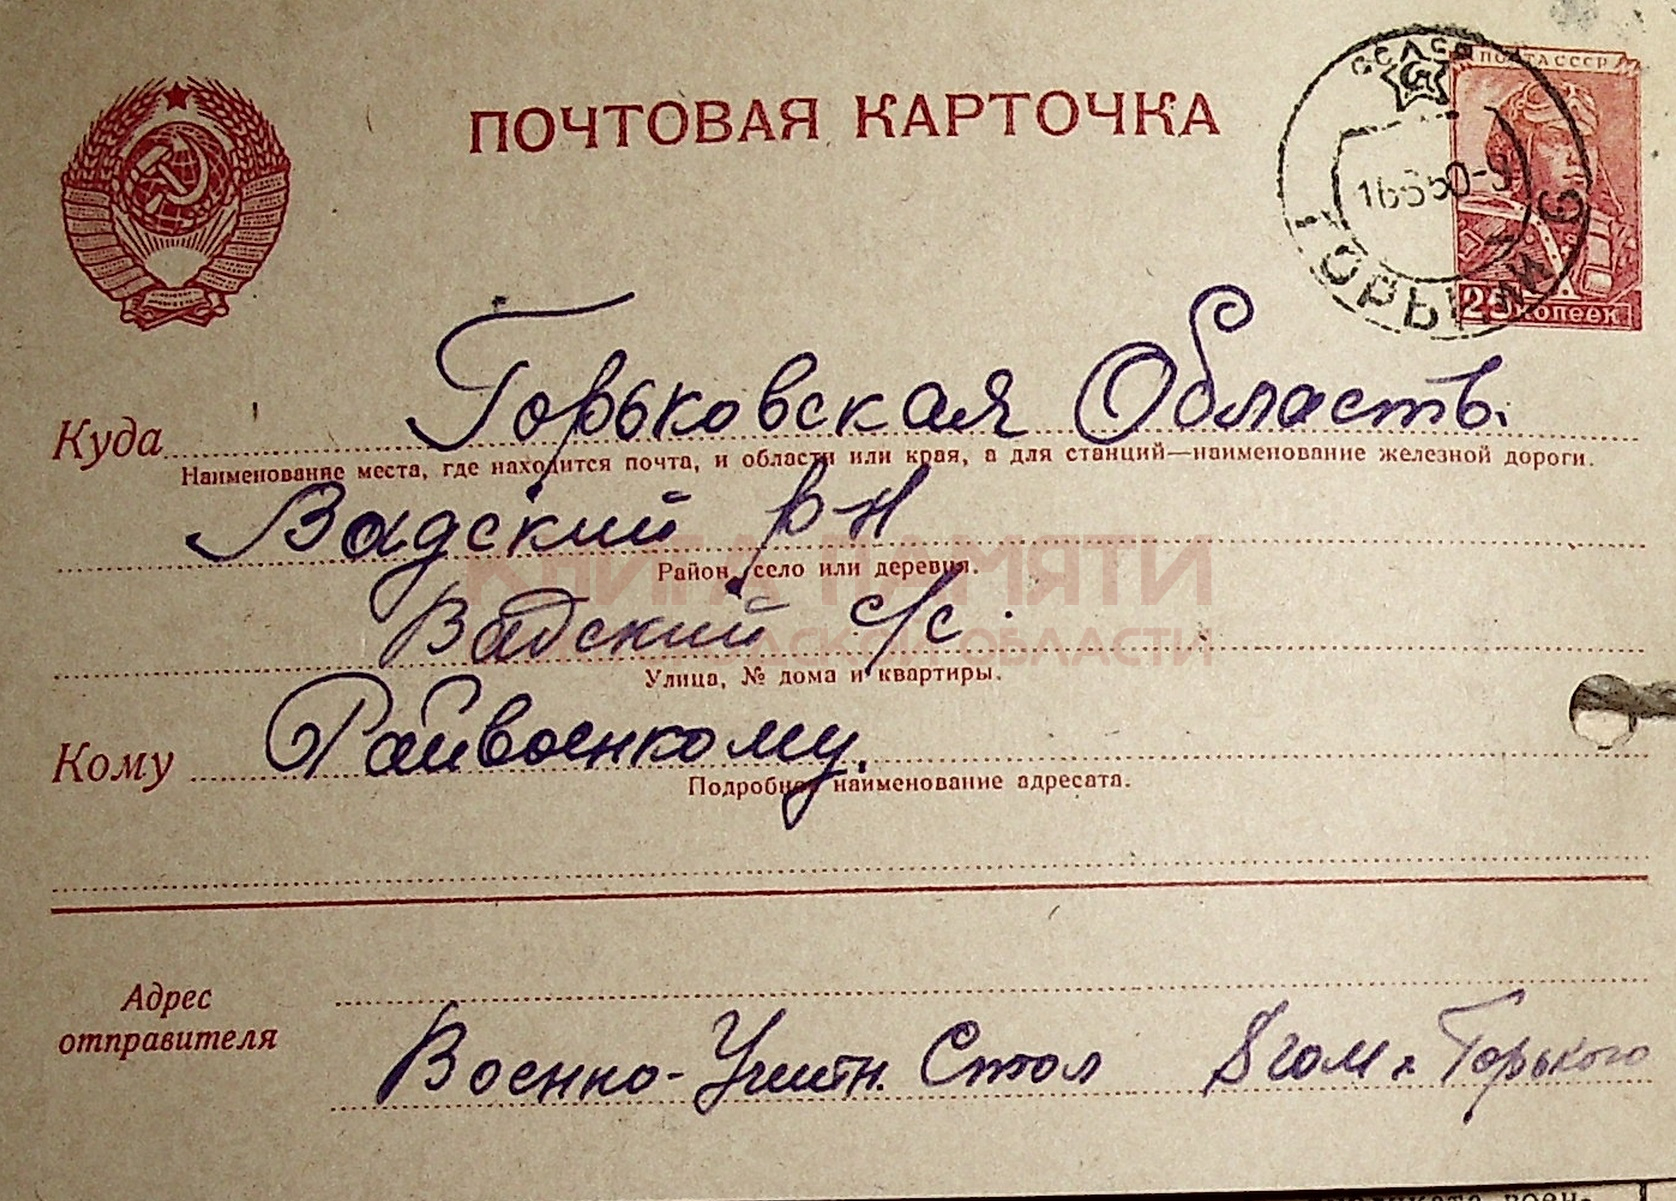 ПОЧТОВАЯ КАРТОЧКА
ПОЧТА СССР
25 КОПЕЕК
ГОРЬКИЙ
Куда Горьковская Область.
Наименование места, где находится почта, и области или края, а для станций—наименование железной дороги.
Вадский р-н
КНИГА ПАМЯТИ
Район, село или деревня.
Вадский с/с.
ОБЛАСТИ
Улица, № дома и квартиры.
Кому Райвоенкому.
Подробное наименование адресата.
Адрес
отправителя
Военно-Учетн. Стол 8 гом г. Горького